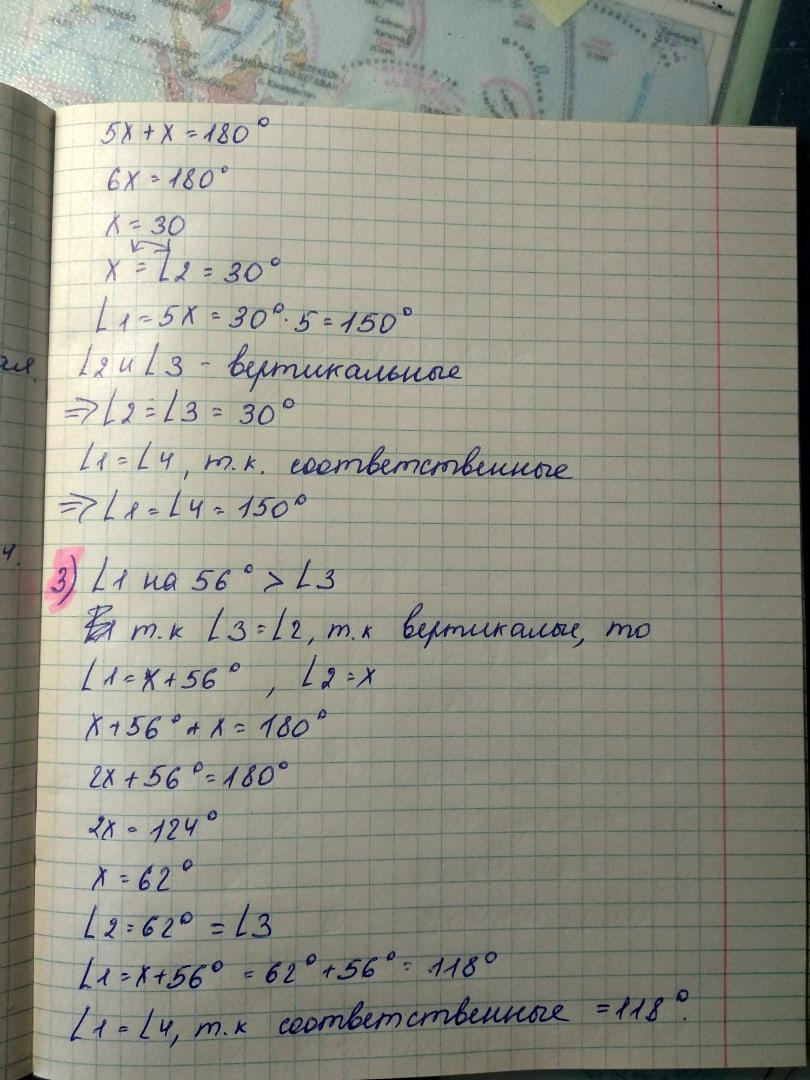 МЕЛЕКЕОК
БАНДАР-СЕРИ-БЕГАВАН
5x + x = 180°
6x = 180°
x = 30
x = ∠2 = 30°
∠1 = 5x = 30°·5 = 150°
∠2 и ∠3 - вертикальные
⇒ ∠2 = ∠3 = 30°
∠1 = ∠4, т.к. соответственные
⇒ ∠1 = ∠4 = 150°
3) ∠1 на 56° > ∠3
т.к ∠3 = ∠2, т.к вертикалые, то
∠1 = x + 56° , ∠2 = x
x + 56° + x = 180°
2x + 56° = 180°
2x = 124°
x = 62°
∠2 = 62° = ∠3
∠1 = x + 56° = 62° + 56° = 118°
∠1 = ∠4, т.к соответственные = 118°.